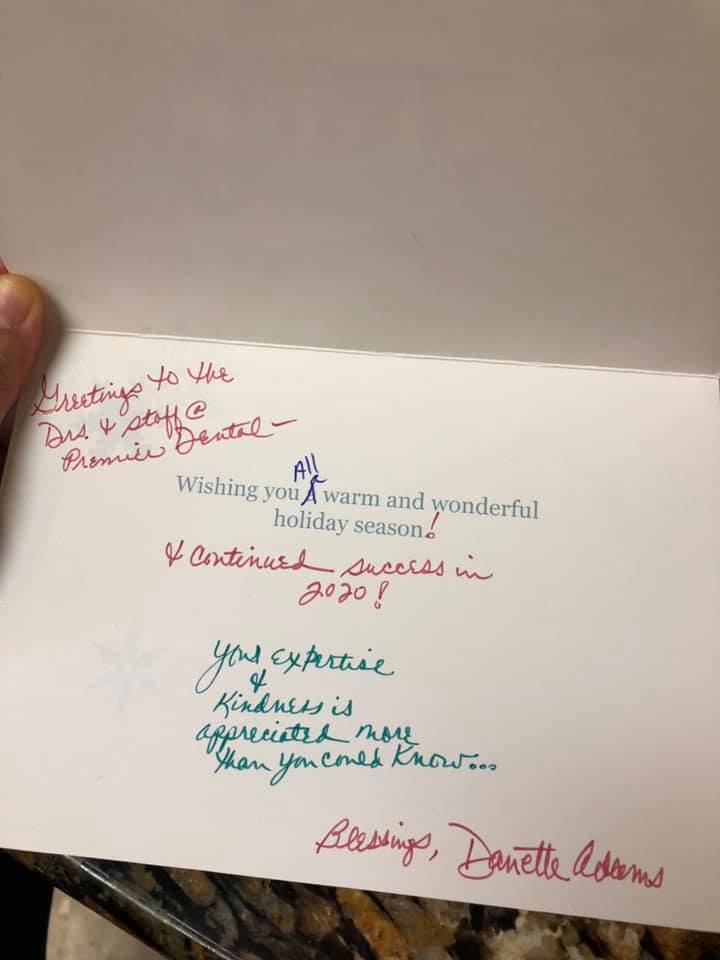 Greetings to the
Drs. & staff @
Premier Dental -
All
Wishing you A warm and wonderful
holiday season!
& continued success in
2020!
Your expertise
&
Kindness is
appreciated more
than you could know...
Blessings, Danette Adams